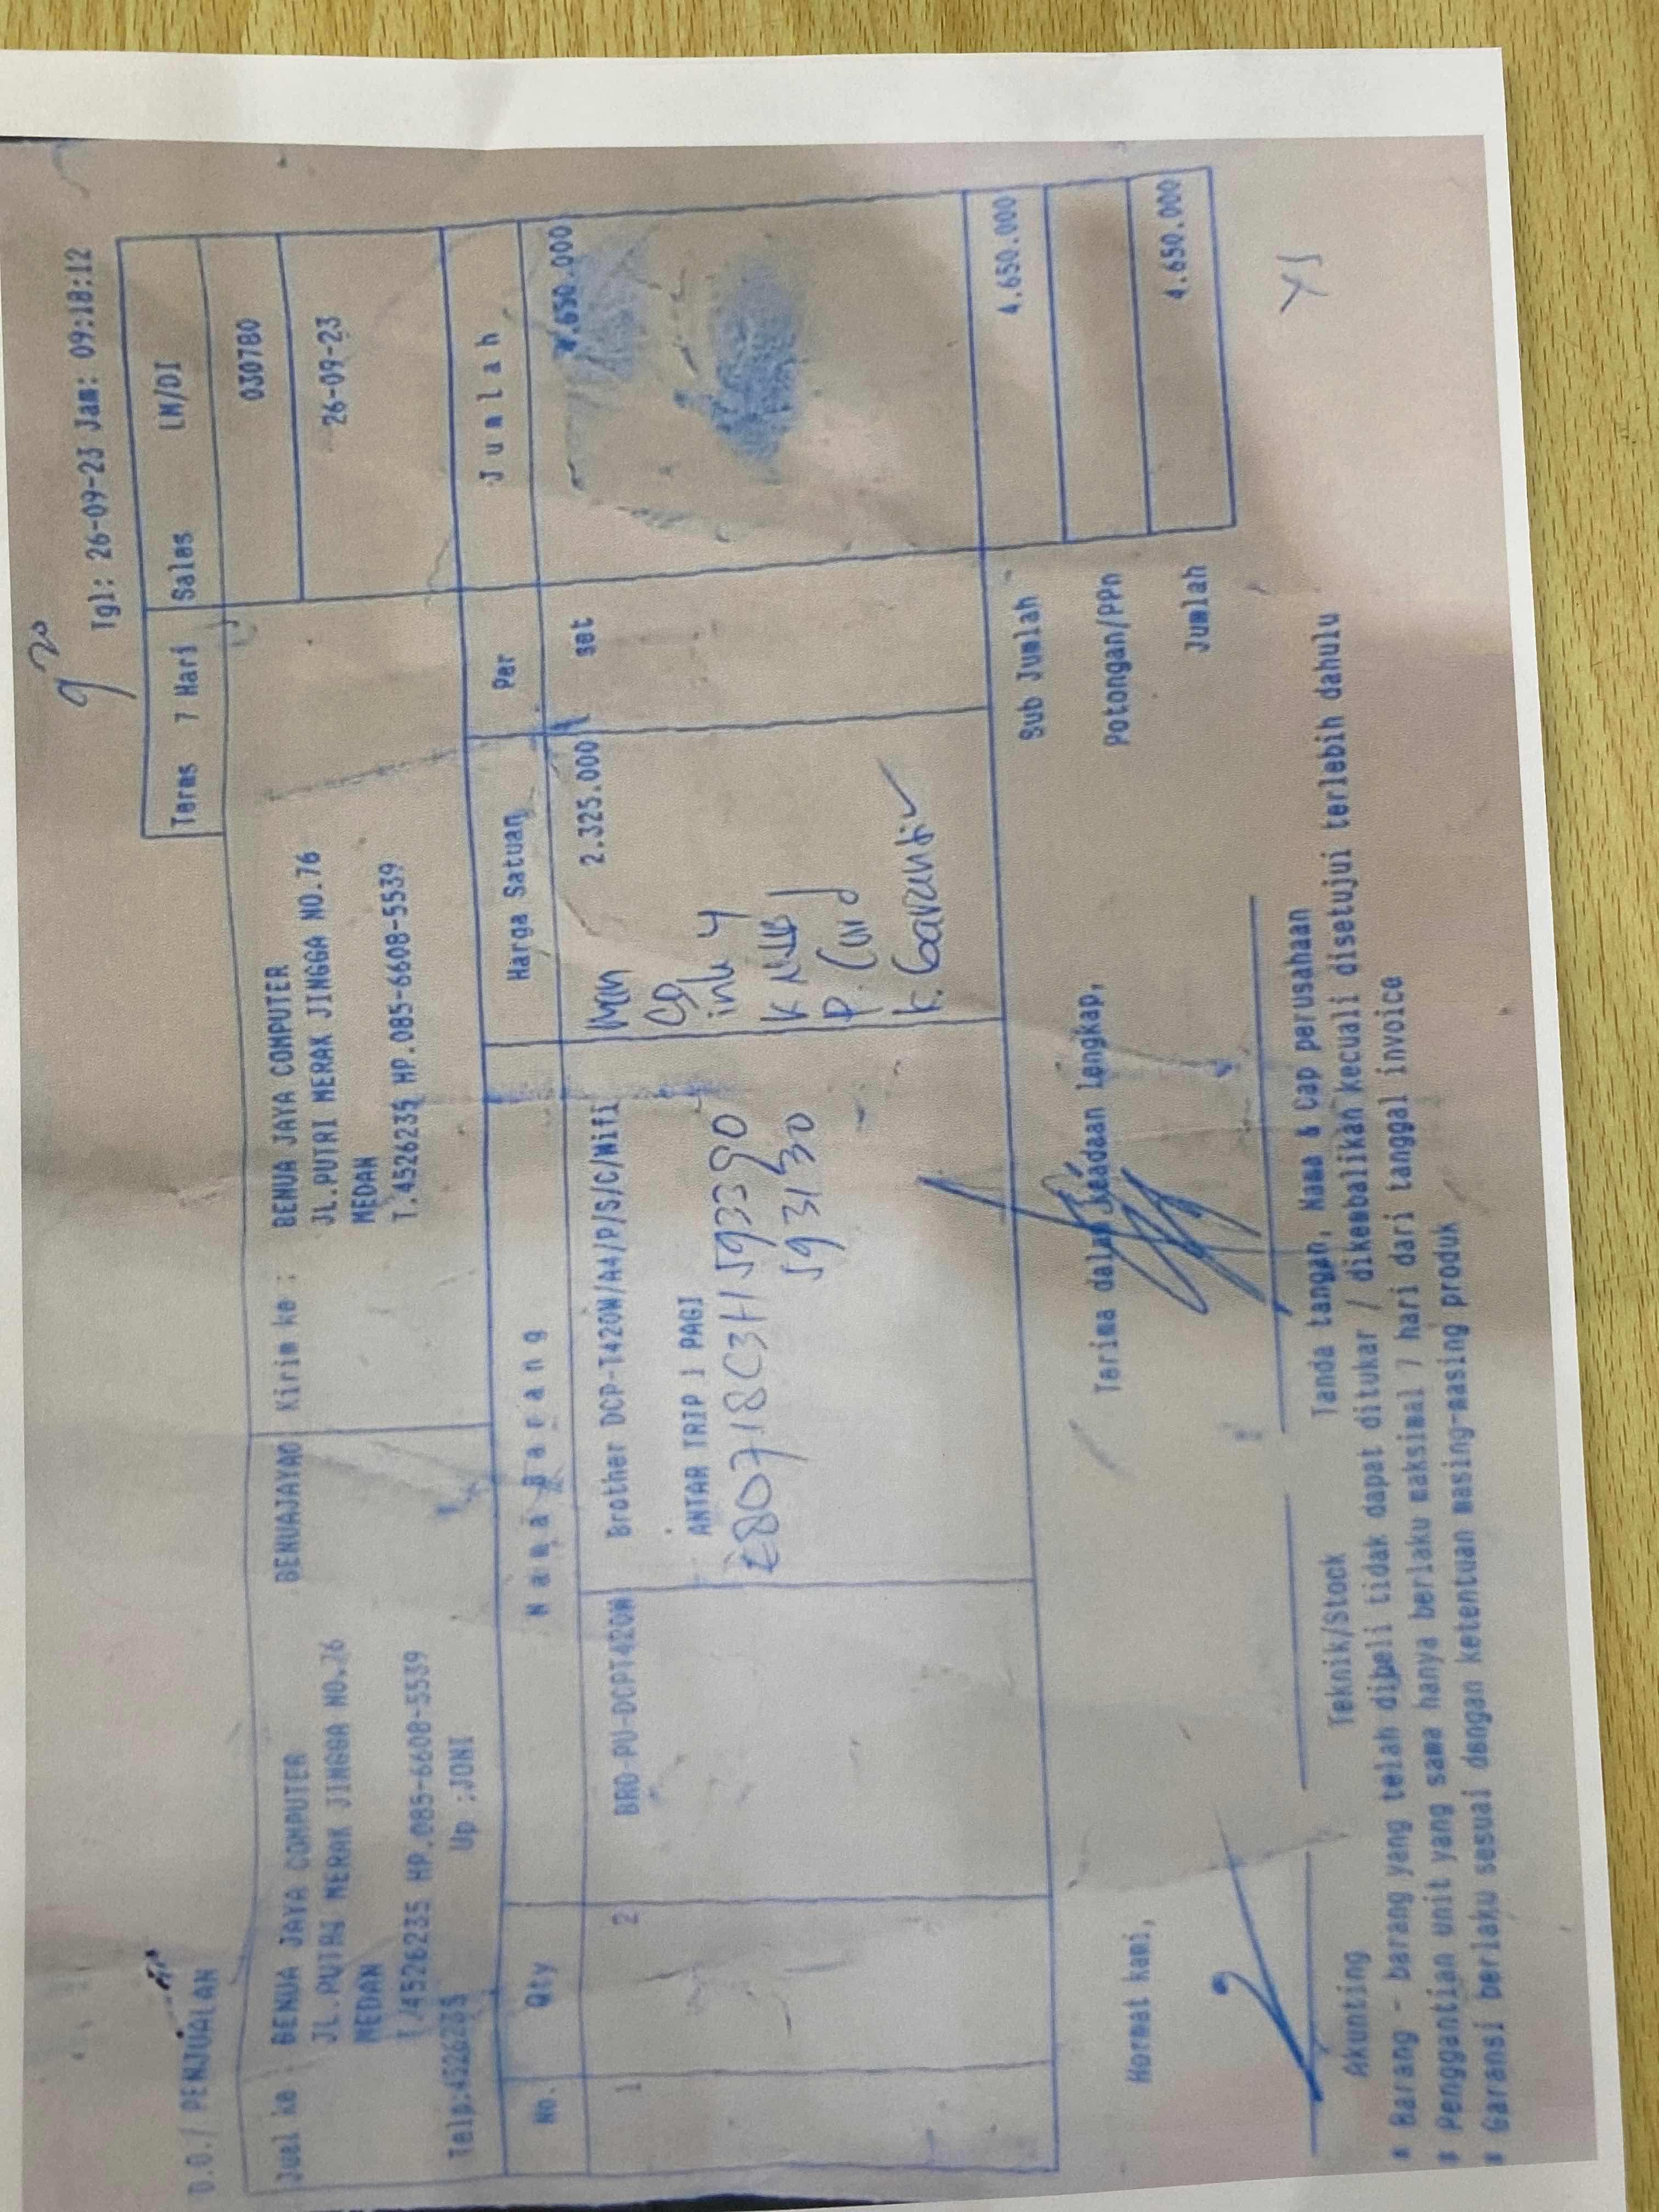 9 20
Tgl: 26-09-23 Jam: 09:18:12
D.O./ PENJUALAN
Terms 7 Hari Sales LM/DI
030780
26-09-23
Jual ke : BENUA JAYA COMPUTER BENUAJAYAO Kirim ke : BENUA JAYA COMPUTER
JL.PUTRI MERAK JINGGA NO.76 JL.PUTRI MERAK JINGGA NO.76
MEDAN MEDAN
T/4526235 HP.085-6608-5539 T.4526235 HP.085-6608-5539
Telp:4526235 Up :JONI
No. Qty N a m a B a r a n g Harga Satuan Per J u m l a h
1 2 BRO-PU-DCPT420W Brother DCP-T420W/A4/P/S/C/Wifi 2.325.000 set 4.650.000
Man
CD
ANTAR TRIP 1 PAGI ink 4
E80718C3H J93390
J93130
P. Card
K. Garansi ✓
Sub Jumlah 4.650.000
Potongan/PPn
Jumlah 4.650.000
Hormat kami, Terima dalam keadaan lengkap,
Akunting Teknik/Stock Tanda tangan, Nama & Cap perusahaan
* Barang - barang yang telah dibeli tidak dapat ditukar / dikembalikan kecuali disetujui terlebih dahulu
* Penggantian unit yang sama hanya berlaku maksimal 7 hari dari tanggal invoice
* Garansi berlaku sesuai dengan ketentuan masing-masing produk